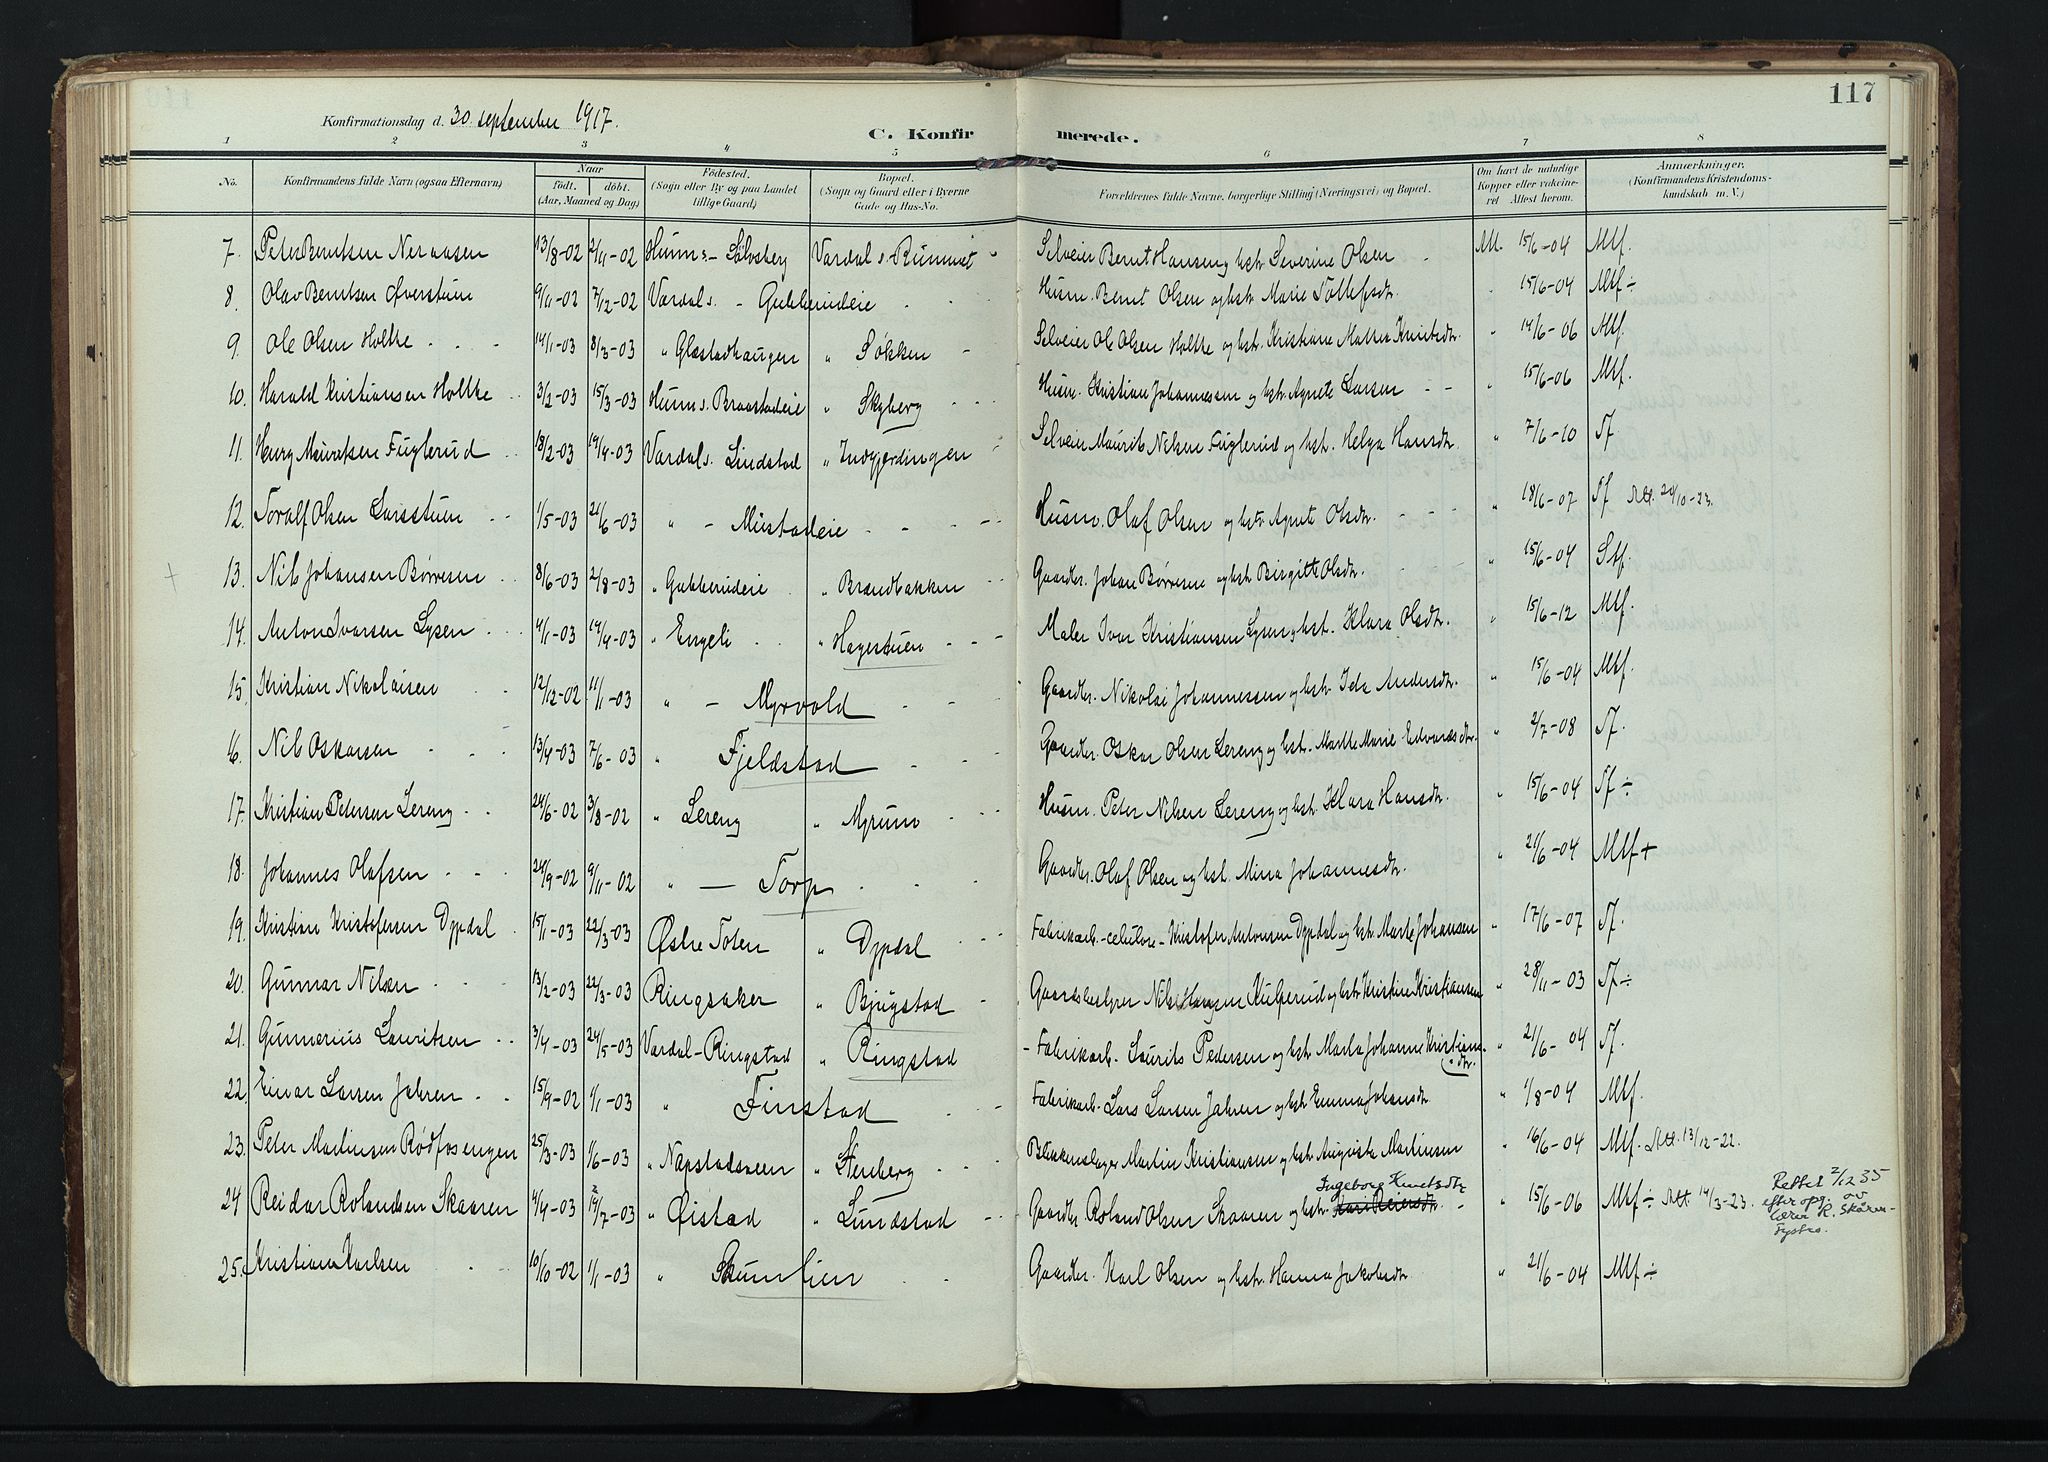 117
Konfirmationsdag d. 30 september 1917.
C. Konfir merede.
1 2 3 4 5 6 7 8
No. Konfirmandens fulde Navn (ogsaa Efternavn) Naar født. døbt. (Aar, Maaned og Dag) Fødested. (Sogn eller By og paa Landet tillige Gaard) Bopæl. (Sogn og Gaard eller i Byerne Gade og Hus-No. Forældrenes fulde Navne, borgerlige Stilling (Næringsvei) og Bopæl. Om havt de naturlige Kopper eller vakcineret Attest herom. Anmærkninger. (Konfirmandens Kristendomskundskab m. V.)
7. Peter Berntsen Neraasen 13/8-02 2/11-02 Hunn s. - Sølvsberg Vardal s. - Rummet Selveier Bernt Hansen og hstr Severine Olsen Att. 15/6-04 Mtf.
8. Olav Berntsen Øverstuen 9/11-02 7/12-02 Vardal s. - Gubberudeie Husm. Bernt Olsen og hstr. Marie Tollefsdtr. " 15/6-04 Mtf ÷
9. Ole Olsen Holtke 14/1-03 8/3-03 " Glæstadhaugen " Søkken Selveier Ole Olsen Holtke og hstr. Kristiane Mathea Knutsdtr. " 14/6-06 Mtf.
10. Harald Kristiansen Holtke 3/2-03 15/3-03 Hunn s. Braastadeie " Skyberg Husm. Kristian Johannessen og hstr. Agnete Larsen " 15/6-06 Mtf.
11. Mauritsen Fuglerud 18/2-03 19/4-03 Vardal s. Lindstad " Indgjerdingen Selveier Maurits Nilsen Fuglerud og hstr. Helga Hansdtr. " 7/6-10 Tf
12. Toralf Olsen Larsstuen 1/5-03 21/6-03 " - Mustadeie Husm. Olaf Olsen og hstr Agnete Olsdtr. " 18/6-07 Tf Att. 20/10-23.
13. Nils Johansen Børresen 8/6-03 2/8-03 " Gubberudeie " Brandbakken Gaardbr. Johan Børresen og hstr Birgitte Olsdtr. " 15/6-04 Stf.
14. Anton Ivarsen Lysen 4/1-03 19/4-03 " Engeli " Hagestuen Maler Ivar Kristiansen Lysen og hst. Klara Olsdtr. " 15/6-12 Mtf.
15. Kristian Nikolaisen 12/12-02 11/1-03 " - Myrvold Gaardbr. Nikolai Johannessen og hstr Ida Andersdtr. " 15/6-04 Mtf.
16. Nils Oskarsen 13/4-03 7/6-03 " Fjeldstad Gaardbr. Oskar Olsen Lereng og hstr. Marthe Marie Edvardsdtr. " 2/7-08 Tf.
17. Kristian Petersen Lereng 24/6-02 3/8-02 " Lereng " Myrum Husm. Peter Nilsen Lereng og hst. Klara Hansdtr. " 15/6-04 Tf ÷
18. Johannes Olafsen 24/9-02 9/11-02 " - Torp Gaardbr. Olaf Olsen og hst. Mina Johannesdtr. " 21/6-04 Mtf +
19. Kristian Kristofersen Dypdal 15/1-03 22/3-03 Østre Toten " Dypdal Fabrikarb. - celulose - Kristofer Antonsen Dypdal og hstr Marte Johansen " 17/6-07 Tf.
20. Gunnar Nilsen 13/2-03 22/3-03 Ringsaker " Bjugstad Gaardsbestyrer Nils Hansen Kulperud og hstr Kristine Kristiansen " 28/11-03 Tf ÷
21. Gunnerius Lauritsen 3/4-03 24/5-03 Vardal - Ringstad " Ringstad Fabrikarb. Laurits Pedersen og hstr Marta Johanne Kristiansdtr. " 21/6-04 Tf.
22. Einar Larsen Jahren 15/9-02 1/1-03 " Finstad Fabrikarb. Lars Larsen Jahren og hstr Emma Johansdtr. " 1/8-04 Mtf.
23. Peter Martinsen Rødfosengen 25/3-03 1/6-03 " Napstadsveen " Stenberg Blikkenslager Martin Kristiansen og hstr Augusta Martinsen " 16/6-04 Mtf. Att. 13/12-22.
24 Reidar Rolandsen Skaaren 4/4-03 19/7-03 " Øistad " Lundstad Gaardbr. Roland Olsen Skaaren og hstr. Kari Reiersdtr. Ingeborg Knutsdtr " 15/6-06 Mtf ÷ Att. 14/3-23. Rettet 2/12 35 efter opg. av lærer R. Skåren
25. Kristian Karlsen 10/10-02 1/1-03 " Skumlien Gaardbr. Karl Olsen og hstr. Hanna Jakobsdtr " 21/6-04 Mtf ÷